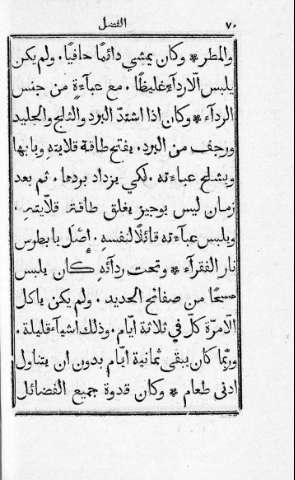 ٧٠ الفصل
والمطر * وكان يمشي دائمًا حافيًا. ولم يكن
يلبس الّا ردآءً غليظًا. مع عبآءةٍ من جنس
الردآء * وكان اذا اشتدّ البرد والثلج والجليد
ورجف من البرد. يفتح طاقة قلايته وبابها
ويشلح عباءته. لكي يزداد بردها. ثم بعد
زمان ليس بوجيز يغلق طاقة قلايته.
ويلبس عبآءته قائلًا لنفسه. اصْلَ يا بطرس
نار الفقرآء * وتحت ردآئه كان يلبس
مسحًا من صفائح الحديد. ولم يكن ياكل
الّا مرّة كلّ في ثلاثة ايّام. وذلك اشيآء قليلة.
وربّما كان يبقى ثمانية ايّام بدون ان يتناول
ادنى طعام * وكان قدوة جميع الفضائل